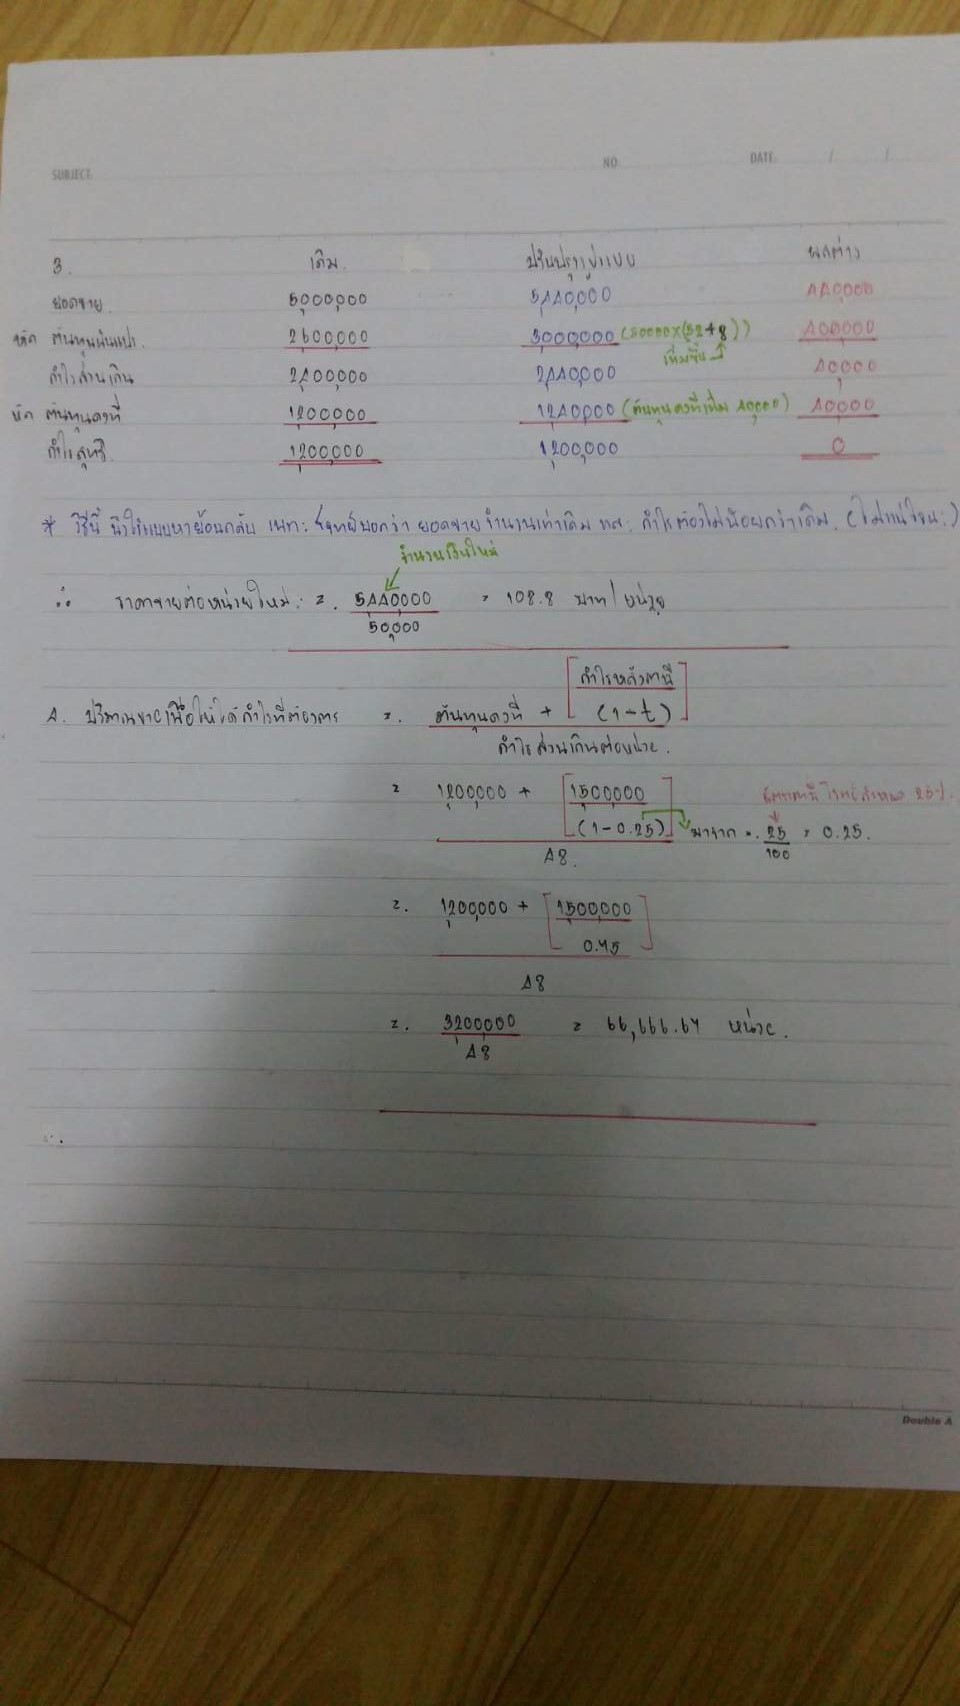 SUBJECT: NO DATE: / /
3. เดิม. ปรับปรุงรูปแบบ ผลต่าง
ยอดขาย 5,000,000 5,440,000 440,000
หัก ต้นทุนผันแปร. 2,600,000 3,000,000 (50000x(52+8)) 400,000
เพิ่มขึ้น
กำไรส่วนเกิน 2,400,000 2,440,000 40,000
หัก ต้นทุนคงที่ 1,200,000 1,240,000 (ต้นทุนคงที่เพิ่ม 40,000) 40,000
กำไรสุทธิ 1,200,000 1,200,000 0
* วิธีนี้ บิวใช้แบบหาย้อนกลับ เพราะ โจทย์บอกว่า ยอดขายจำนวนเท่าเดิม และ กำไรต้องไม่น้อยกว่าเดิม. (ไม่แน่ใจนะ)
จำนวนเงินใหม่
∴ ราคาขายต่อหน่วยใหม่ = 5,440,000 = 108.8 บาท/หน่วย
50,000
4. ปริมาณขายเพื่อให้ได้กำไรที่ต้องการ = ต้นทุนคงที่ + [กำไรหลังภาษี
(1-t)]
กำไรส่วนเกินต่อหน่วย.
= 1,200,000 + [1,500,000 อัตราภาษี โจทย์กำหนด 25%.
(1-0.25)] มาจาก = 25 = 0.25.
100
48.
= 1,200,000 + [1,500,000
0.75]
48
= 3,200,000 = 66,666.67 หน่วย.
48
Double A